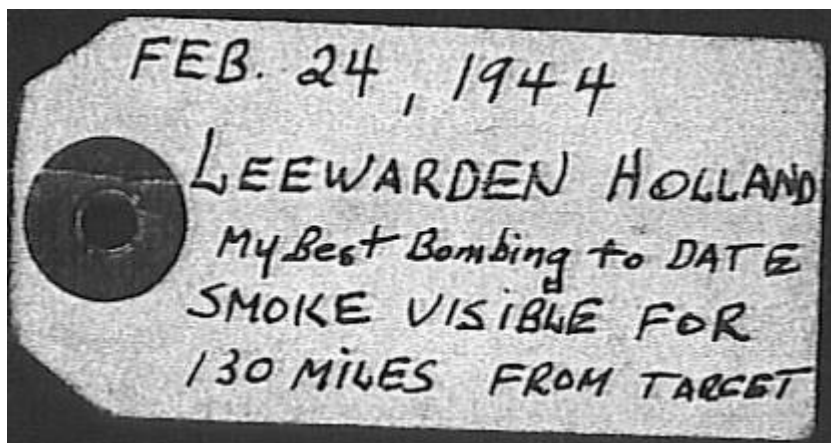 FEB. 24, 1944
LEEWARDEN HOLLAND
My Best Bombing to DATE
SMOKE VISIBLE FOR
130 MILES FROM TARGET